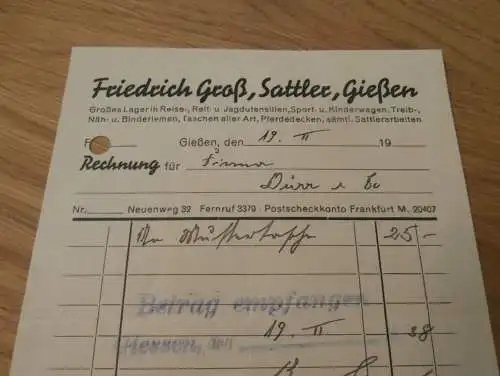 Friedrich Groß, Sattler, Gießen
Großes Lager in Reise-, Reit- u. Jagdutensilien, Sport- u. Kinderwagen, Treib-,
Näh- u. Binderiemen, Taschen aller Art, Pferdedecken, sämtl. Sattlerarbeiten
F
Gießen, den 19. II 19
3
Rechnung für Firma
Dürr & Co
Nr. Neuenweg 32 Fernruf 3379 Postscheckkonto Frankfurt M. 20407
Mustertasche 25.-
Betrag empfangen
19. II 38
Hessen, den